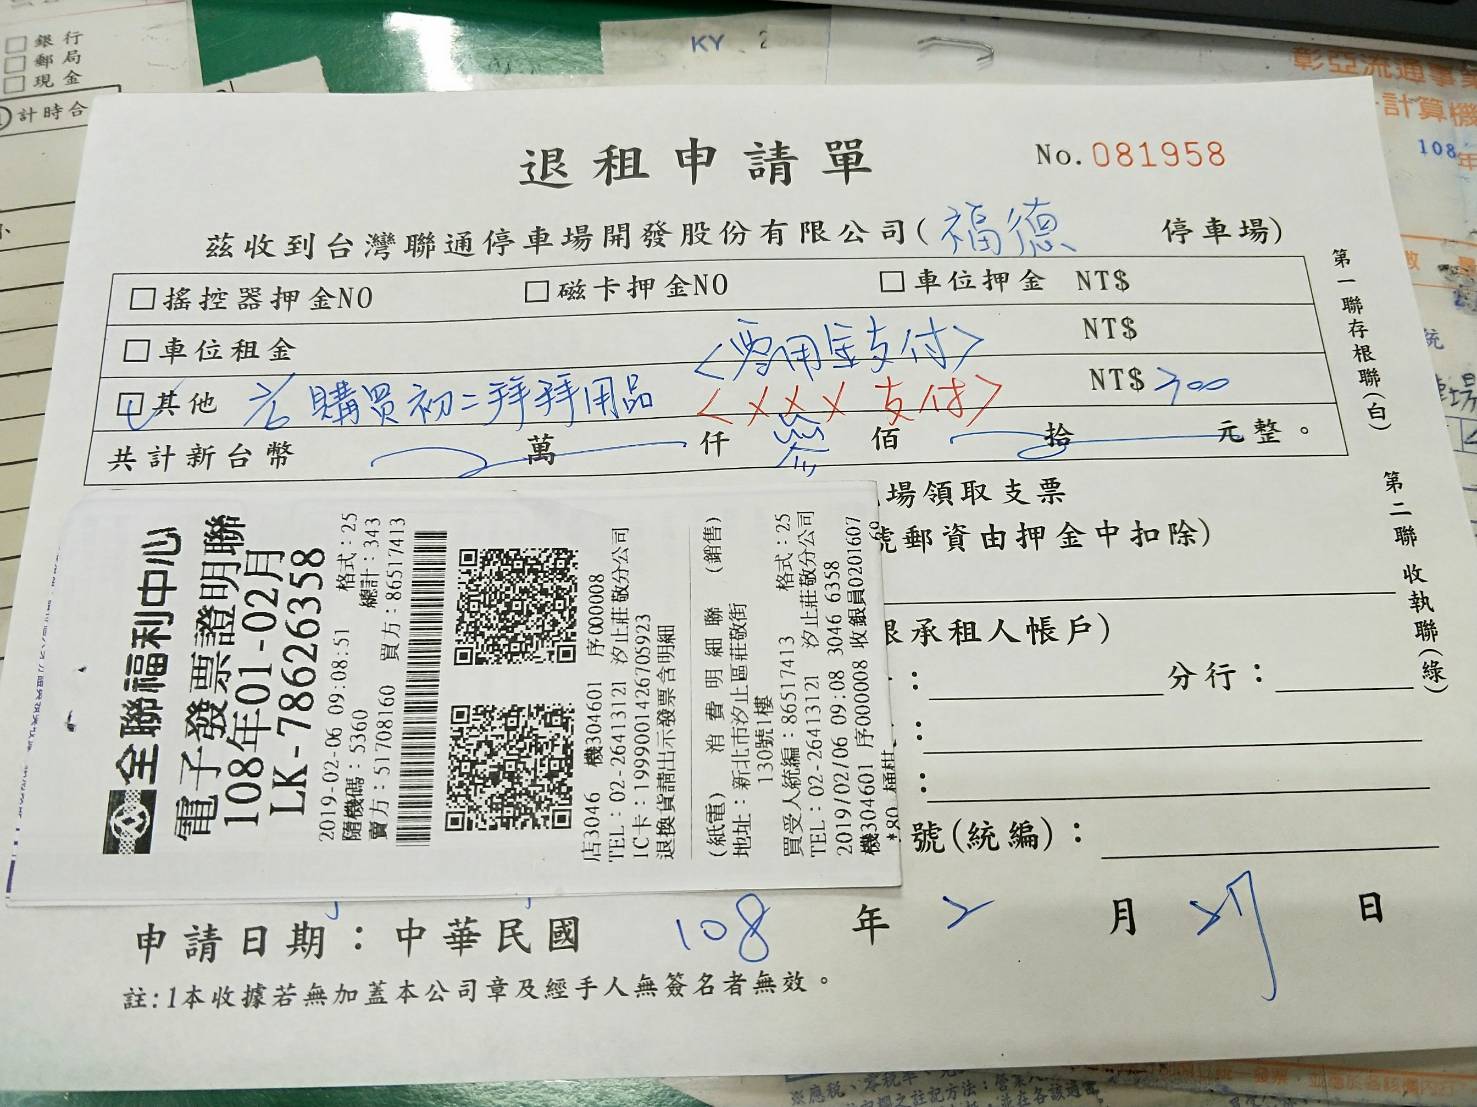 銀行
郵局
現金
計時合
KY
彰亞流通事業
計算機
108年
退租申請單
No.081958
茲收到台灣聯通停車場開發股份有限公司(福德 停車場)
□搖控器押金NO □磁卡押金NO □車位押金 NT$
□車位租金 <零用金支付> NT$
□其他 購買初二拜拜用品 <XXX支付> NT$300
共計新台幣 萬 仟 參 佰 拾 元整。
場領取支票
號郵資由押金中扣除)
限承租人帳戶)
: 分行:
:
:
號(統編):
第一聯存根聯(白)
第二聯收執聯(綠)
全聯福利中心
電子發票證明聯
108年01-02月
LK-78626358
2019-02-06 09:08:51 格式:25
隨機碼:5360 總計:343
賣方:51708160 買方:86517413
店3046 機304601 序000008
TEL:02-26413121 汐止莊敬分公司
IC卡:1999001426705923
退換貨請出示發票含明細
(紙電) 消費明細聯 (銷售)
地址:新北市汐止區莊敬街
130號1樓
買受人統編:86517413 格式:25
TEL:02-26413121 汐止莊敬分公司
2019/02/06 09:08 3046 6358
機304601 序000008 收銀員0201607
申請日期:中華民國 108 年 2 月 27 日
註:1本收據若無加蓋本公司章及經手人無簽名者無效。